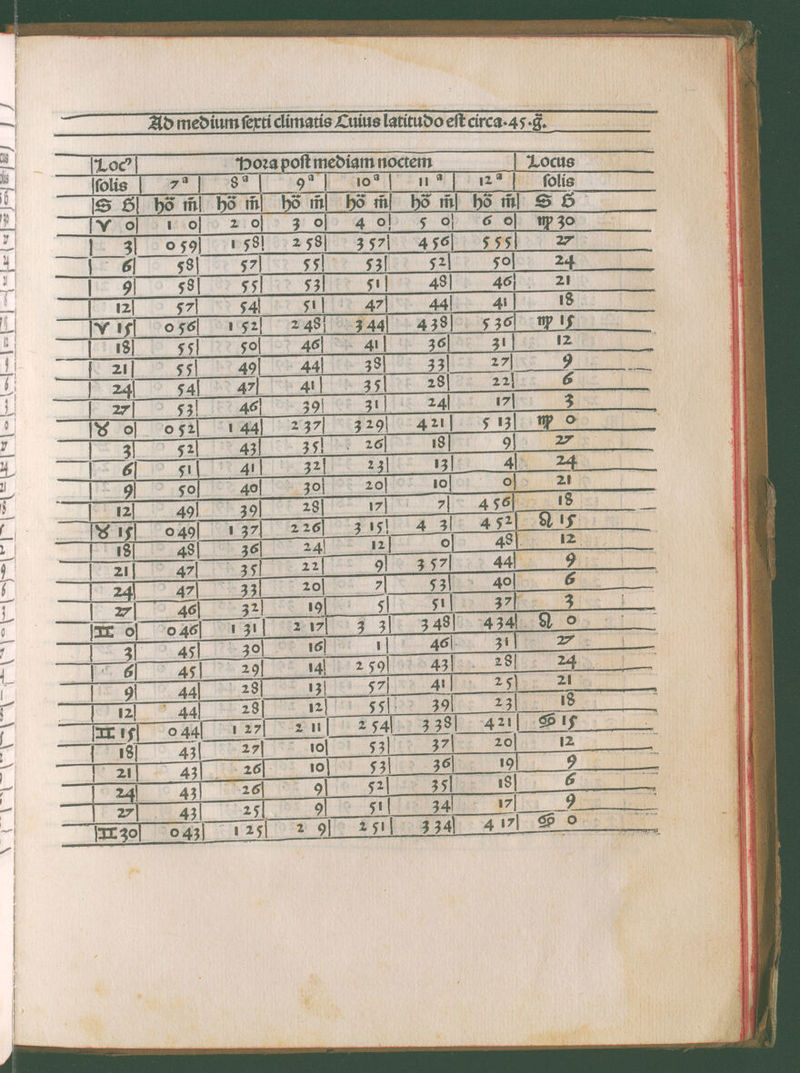 Ad medium sexti climatis Cuius latitudo est circa.45.g̃.
Locꝰ Hora post mediam noctem Locus
solis 7ª 8ª 9ª 10ª 11ª 12ª solis
S G hõ m̃ hõ m̃ hõ m̃ hõ m̃ hõ m̃ hõ m̃ S G
♈ 0 1 0 2 0 3 0 4 0 5 0 6 0 ♍ 30
3 0 59 1 58 2 58 3 57 4 56 5 55 27
6 58 57 55 53 52 50 24
9 58 55 53 51 48 46 21
12 57 54 51 47 44 41 18
♈ 15 0 56 1 52 2 48 3 44 4 38 5 36 ♍ 15
18 55 50 46 41 36 31 12
21 55 49 44 38 33 27 9
24 54 47 41 35 28 22 6
27 53 46 39 31 24 17 3
♉ 0 0 52 1 44 2 37 3 29 4 21 5 13 ♍ 0
3 52 43 35 26 18 9 27
6 51 41 32 23 13 4 24
9 50 40 30 20 10 0 21
12 49 39 28 17 7 4 56 18
♉ 15 0 49 1 37 2 26 3 15 4 3 4 52 ♌ 15
18 48 36 24 12 0 48 12
21 47 35 22 9 3 57 44 9
24 47 33 20 7 53 40 6
27 46 32 19 5 51 37 3
♊ 0 0 46 1 31 2 17 3 3 3 48 4 34 ♌ 0
3 45 30 16 1 46 31 27
6 45 29 14 2 59 43 28 24
9 44 28 13 57 41 25 21
12 44 28 12 55 39 23 18
♊ 15 0 44 1 27 2 11 2 54 3 38 4 21 ♋ 15
18 43 27 10 53 37 20 12
21 43 26 10 53 36 19 9
24 43 26 9 52 35 18 6
27 43 25 9 51 34 17 9
♊ 30 0 43 1 25 2 9 2 51 3 34 4 17 ♋ 0